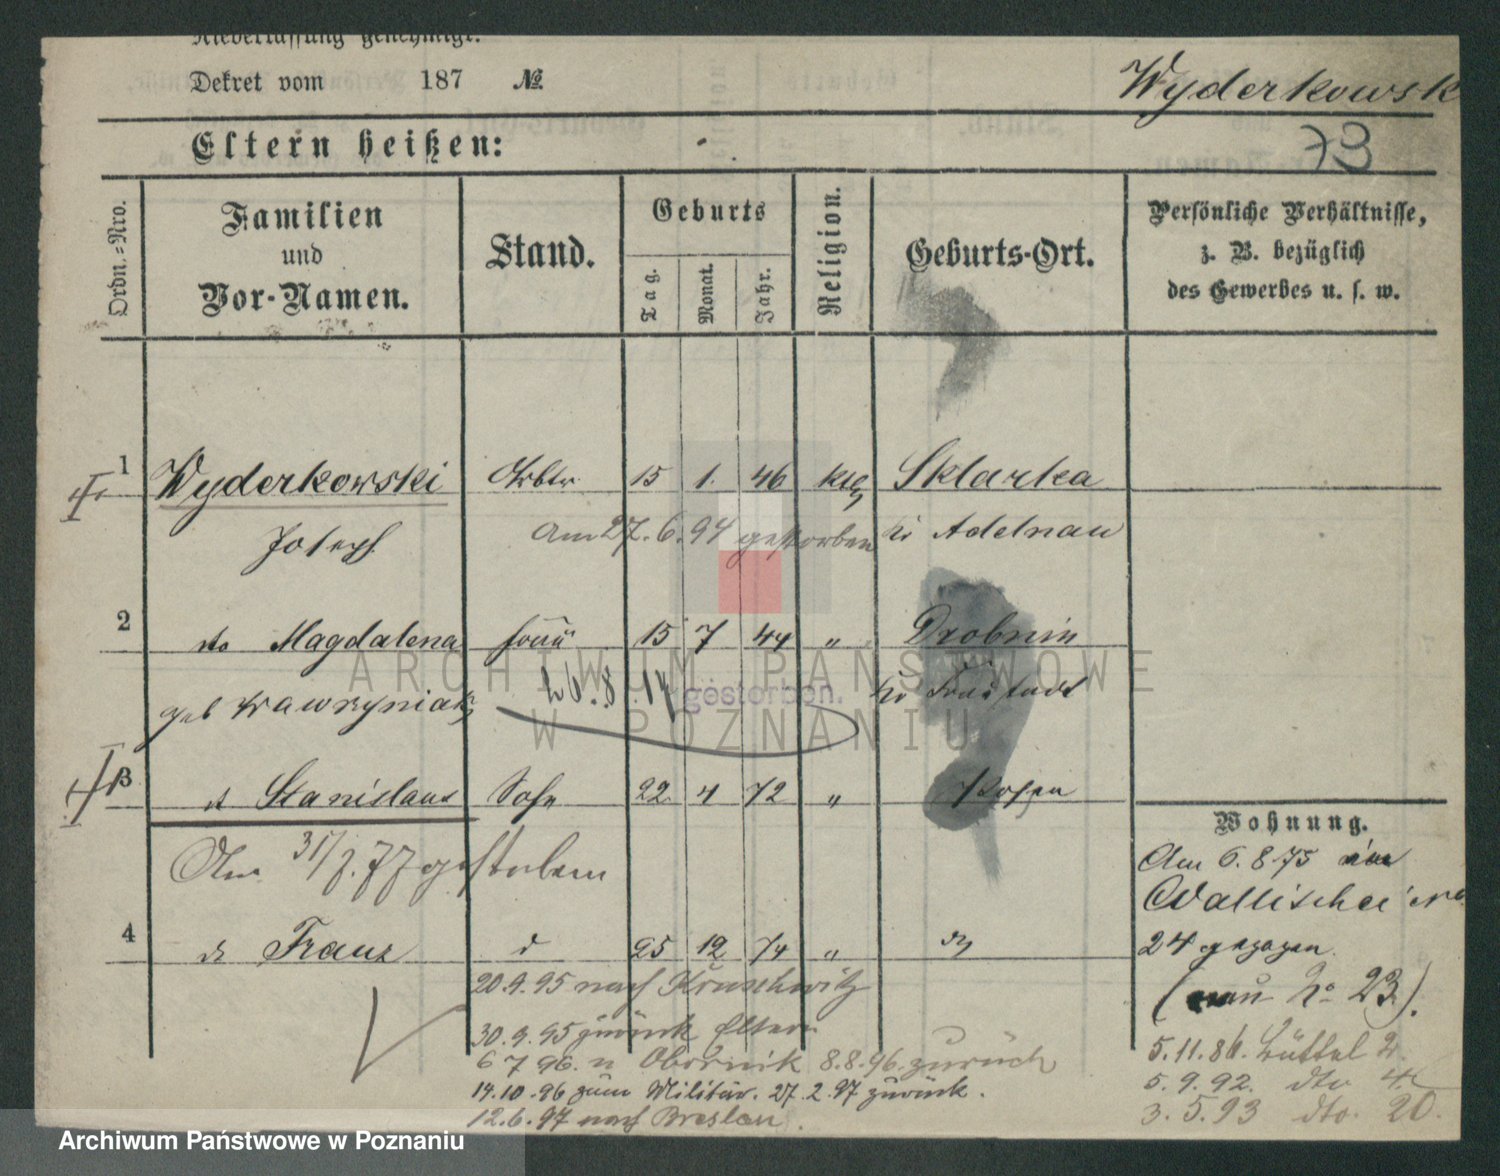 Niederlassung genehmigt.
Dekret vom 187 №
Wyderkowsk
73
Eltern heißen:
Ordn.-Nro.
Familien
und
Vor-Namen.
Stand.
Geburts
Tag.
Monat.
Jahr.
Religion.
Geburts-Ort.
Persönliche Verhältnisse,
z. B. bezüglich
des Gewerbes u. s. w.
1 Wyderkowski Arbtr. 15 1. 46 kth Sklarka
Joseph Am 27.6.94 gestorben Kr Adelnau
2 do Magdalena Frau 15 7 44 " Drobnin
geb Wawryniak 26.8.14 gestorben. Kr Fraustadt
3 dt Stanislaus Sohn 22 4 72 " Posen
Am 31/7.77 gestorben
4 dt Franz d 25 12 74 " do
20.9.95 nach Kruschwitz
30.9.95 zurück Eltern
6 7 96. n Obornik 8.8.96. zurück
14.10.96 zum Militär. 27.2.97 zurück.
12.6.97 nach Breslau.
Wohnung.
Am 6.8.75 in
Wallischei No
24 gezogen.
(neu No 23).
5.11.86. Büttel 2.
5.9.92. dto 4
3.5.93 dto. 20.
ARCHIWUM PAŃSTWOWE
W POZNANIU
Archiwum Państwowe w Poznaniu